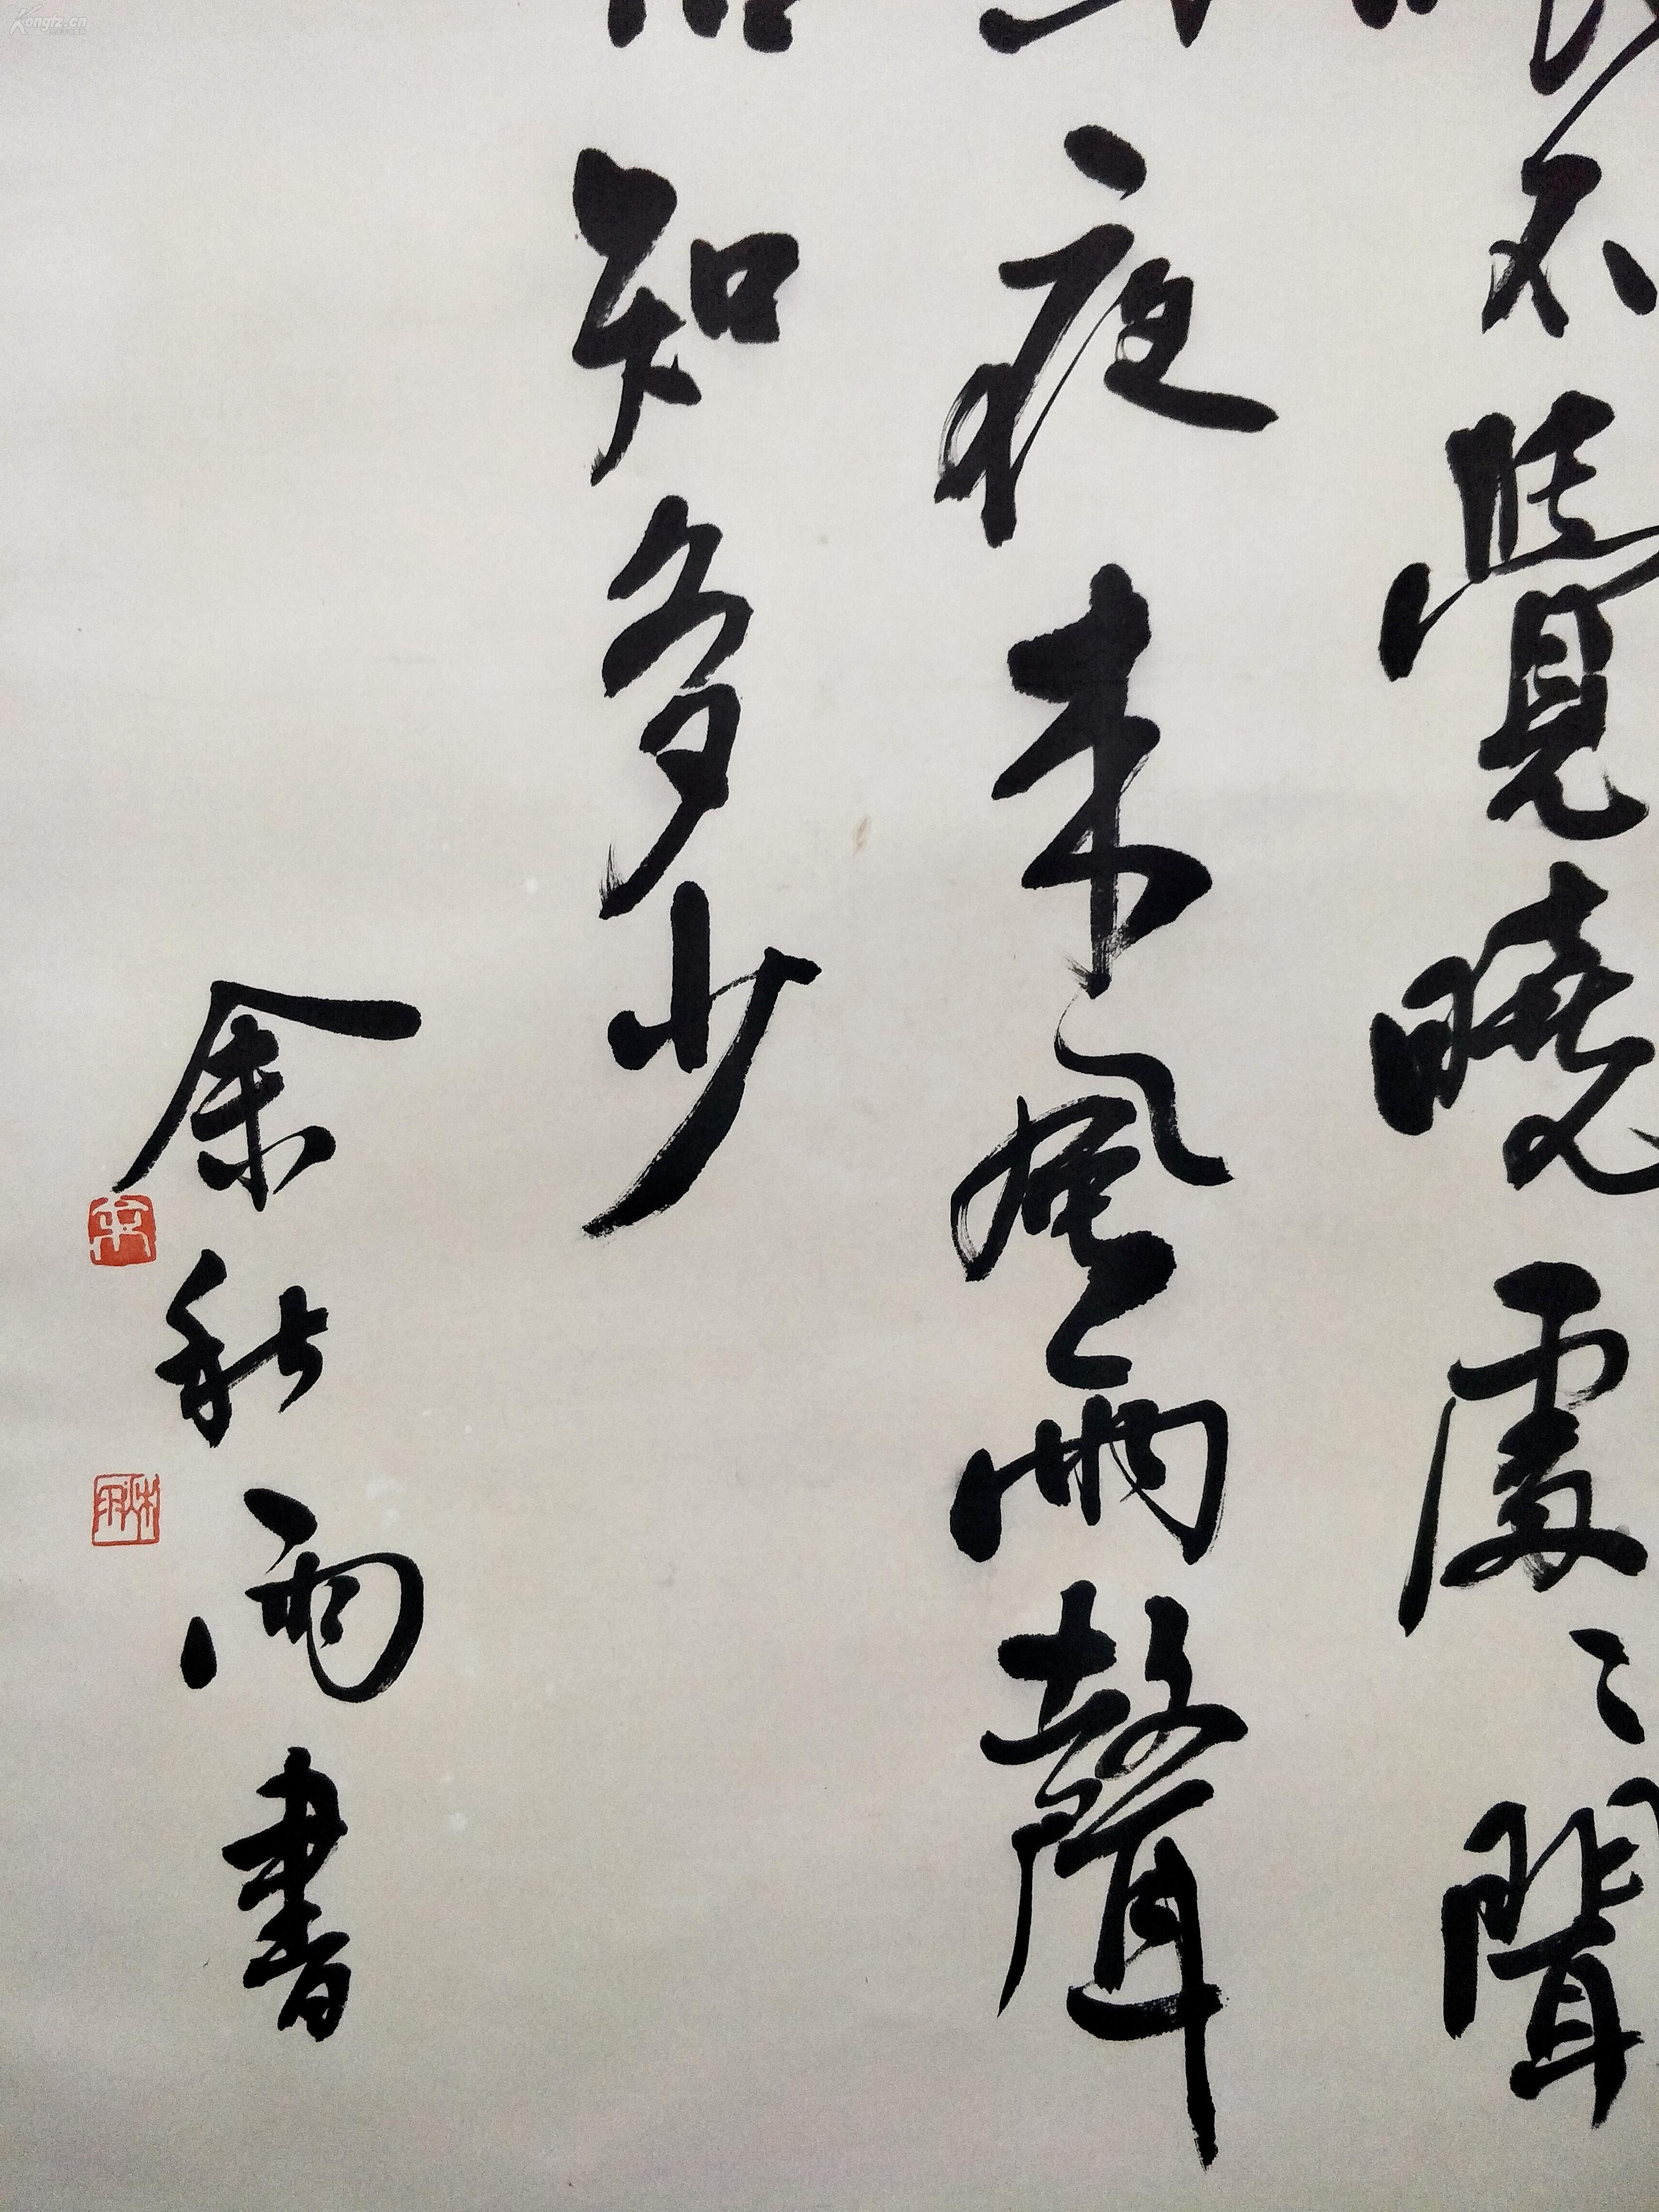 不覺曉處〻聞
夜来風雨聲
知多少
余秋雨書
Kongfz.cn